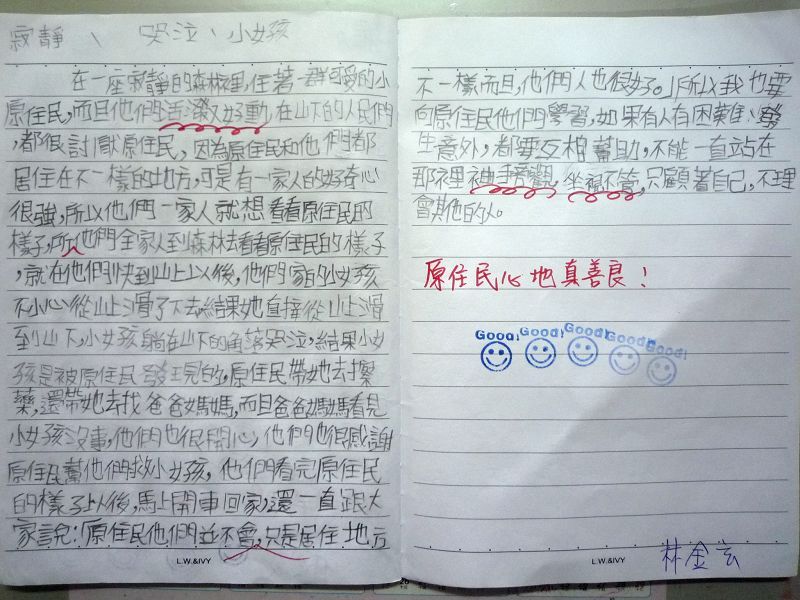 寂靜、哭泣、小女孩
在一座寂靜的森林裡,住著一群可愛的小
原住民,而且他們生活潑又好動,在山下的人民們
,都很討厭原住民,因為原住民和他們都
居住在不一樣的地方,可是有一家人的好奇心
很強,所以他們一家人就想看看原住民的
樣子,所他們全家人到森林去看看原住民的樣子
,就在他們快到山上以後,他們家的小女孩
不小心從山上滑了下去結果她直接從山上滑
到山下,小女孩躺在山下的角落哭泣,結果小女
孩是被原住民發現的,原住民帶她去擦
藥,還帶她去找爸爸媽媽,而且爸爸媽媽看見
小女孩沒事,他們也很開心,他們也很感謝
原住民幫他們救小女孩,他們看完原住民
的樣子以後,馬上開車回家,還一直跟大
家說:「原住民他們並不會,只是居住地方
L.W.&IVY
不一樣而且,他們人也很好。」所以我也要
向原住民他們學習,如果有人有困難、發
生意外,都要互相幫助,不能一直站在
那裡袖手旁觀,坐視不管,只顧著自己,不理
會其他的人。
原住民心地真善良!
Good! Good! Good! Good! Good!
L.W.&IVY
林金玄